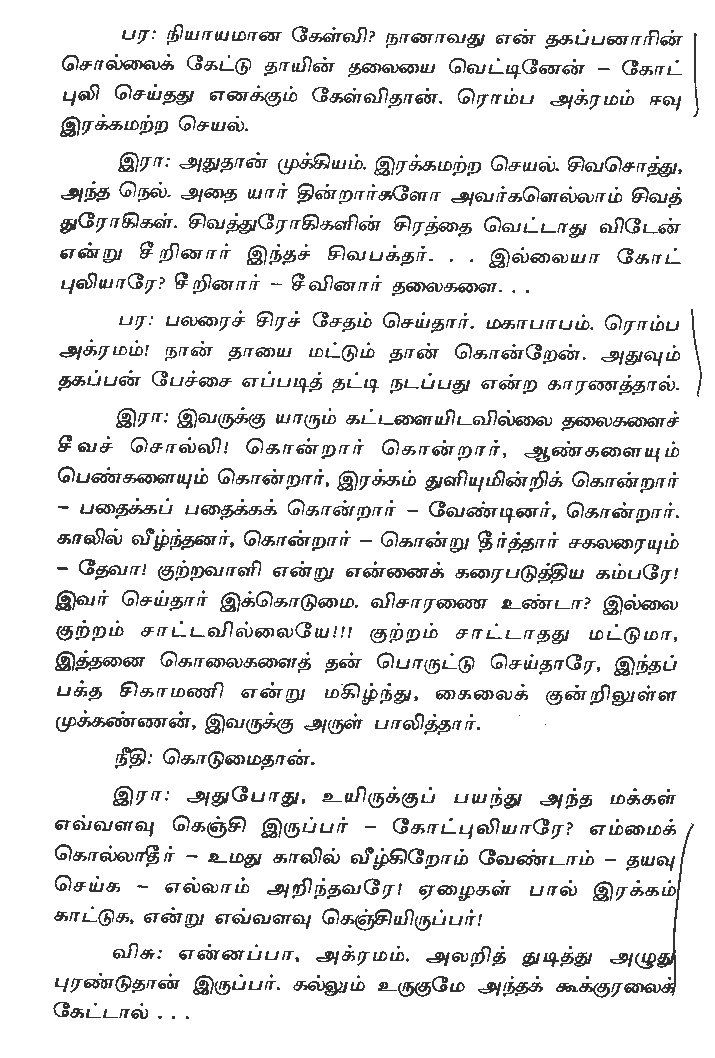 பர: நியாயமான கேள்வி? நானாவது என் தகப்பனாரின்
சொல்லைக் கேட்டு தாயின் தலையை வெட்டினேன் – கோட்
புலி செய்தது எனக்கும் கேள்விதான். ரொம்ப அக்ரமம் ஈவு
இரக்கமற்ற செயல்.
இரா: அதுதான் முக்கியம். இரக்கமற்ற செயல். சிவசொத்து,
அந்த நெல். அதை யார் தின்றார்களோ அவர்களெல்லாம் சிவத்
துரோகிகள். சிவத்துரோகிகளின் சிரத்தை வெட்டாது விடேன்
என்று சீறினார் இந்தச் சிவபக்தர். . . இல்லையா கோட்
புலியாரே? சீறினார் – சீவினார் தலைகளை. . .
பர: பலரைச் சிரச் சேதம் செய்தார். மகாபாபம். ரொம்ப
அக்ரமம்! நான் தாயை மட்டும் தான் கொன்றேன். அதுவும்
தகப்பன் பேச்சை எப்படித் தட்டி நடப்பது என்ற காரணத்தால்.
இரா: இவருக்கு யாரும் கட்டளையிடவில்லை தலைகளைச்
சீவச் சொல்லி! கொன்றார் கொன்றார், ஆண்களையும்
பெண்களையும் கொன்றார், இரக்கம் துளியுமின்றிக் கொன்றார்
– பதைக்கப் பதைக்கக் கொன்றார் – வேண்டினர், கொன்றார்.
காலில் வீழ்ந்தனர், கொன்றார் – கொன்று தீர்த்தார் சகலரையும்
– தேவா! குற்றவாளி என்று என்னைக் கரைபடுத்திய கம்பரே!
இவர் செய்தார் இக்கொடுமை. விசாரணை உண்டா? இல்லை
குற்றம் சாட்டவில்லையே!!! குற்றம் சாட்டாதது மட்டுமா,
இத்தனை கொலைகளைத் தன் பொருட்டு செய்தாரே, இந்தப்
பக்த சிகாமணி என்று மகிழ்ந்து, கைலைக் குன்றிலுள்ள
முக்கண்ணன், இவருக்கு அருள் பாலித்தார்.
நீதி: கொடுமைதான்.
இரா: அதுபோது, உயிருக்குப் பயந்து அந்த மக்கள்
எவ்வளவு கெஞ்சி இருப்பர் – கோட்புலியாரே? எம்மைக்
கொல்லாதீர் – உமது காலில் வீழ்கிறோம் வேண்டாம் – தயவு
செய்க – எல்லாம் அறிந்தவரே! ஏழைகள் பால் இரக்கம்
காட்டுக, என்று எவ்வளவு கெஞ்சியிருப்பர்!
விசு: என்னப்பா, அக்ரமம். அலறித் துடித்து அழுது
புரண்டுதான் இருப்பர். கல்லும் உருகுமே அந்தக் கூக்குரலைக்
கேட்டால் . . .